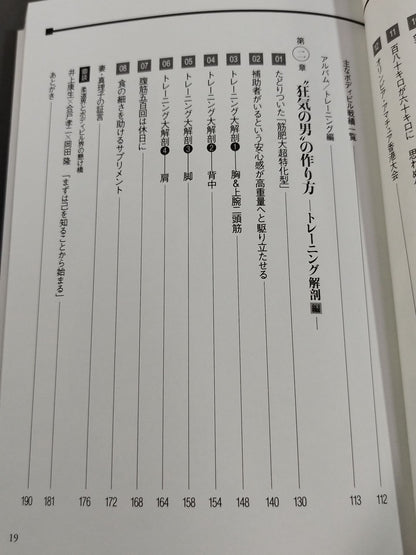 11 百八十キロが六十キロに
主なボディビル戦績一覧 112
アルバム/トレーニング編 113
第二章 “狂気の男”の作り方 ―トレーニング解剖編―
01 たどりついた「筋肥大超特化型」 130
02 補助者がいるという安心感が高重量へと駆り立たせる 140
03 トレーニング大解剖❶ 胸&上腕三頭筋 148
04 トレーニング大解剖❷ 背中 154
05 トレーニング大解剖❸ 脚 158
06 トレーニング大解剖❹ 肩 164
07 腹筋五百回は休日に 168
08 食の細さを助けるサプリメント 172
妻・真理子の証言 176
鼎談 柔道男とボディビル界の懸け橋
井上康生×合戸孝二×岡田 隆 「まずは己を知ることから始まる」 181
あとがき 190
19